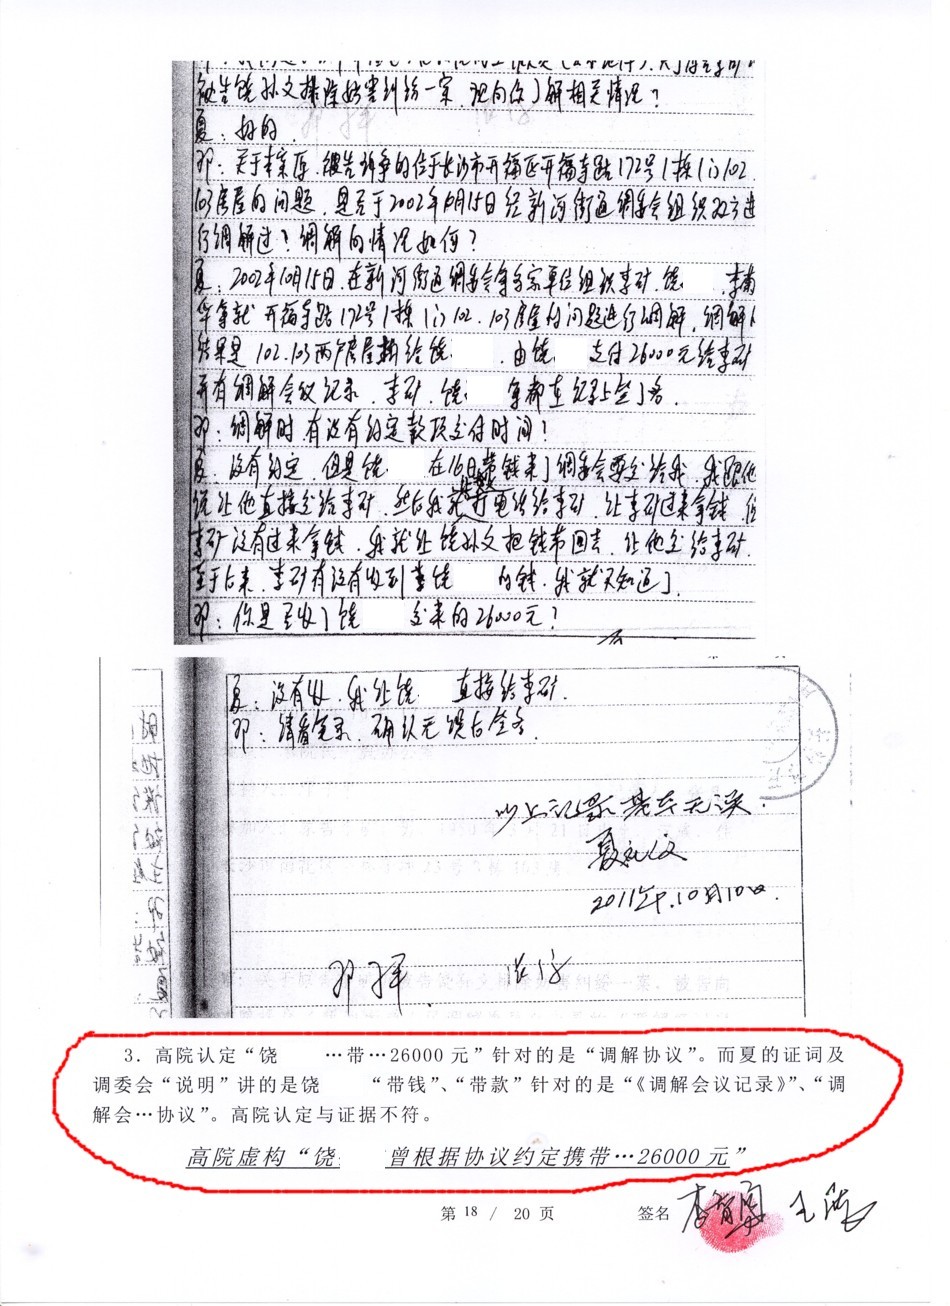 被告饶孙文排除妨害纠纷一案,现向你了解相关情况?
夏:好的.
邓:关于本案原.被告诉争的位于长沙市开福区开福寺路172号1栋1门102.
103房屋的问题.是否于2002年10月15日经新河街道调委会组织双方进
行调解过?调解的情况如何?
夏.2002年10月15日.在新河街道调委会等多家单位组织李矿.饶 .李南
华等就开福寺路172号1栋1门102.103房屋的问题进行调解.调解
结果是102.103两户房屋 给饶 .由饶 支付26000元给李矿
并有调解会议纪录.李矿.饶 等都在纪录上签了名.
邓:调解时有没有约定款项交付时间?
夏.没有约定.但是饶 在16日带钱来了调委会要交给我.我跟他
说让他直接交给李矿.然后我就打电话给李矿.让李矿过来拿钱.但
李矿没有过来拿钱.我就让饶孙文把钱带回去.让他交给李矿.
至于后来.李矿有没有收到 饶 的钱.我就不知道了.
邓:你是否收了饶 交来的26000元?
夏:没有收.我让饶 直接给李矿.
邓:请看笔录.确认无误后签名.
以上记录基本无误.
夏
2011年.10月10日.
邓
3.高院认定“饶 …带…26000 元”针对的是“调解协议”。而夏的证词及
调委会“说明”讲的是饶 “带钱”、“带款”针对的是“《调解会议记录》”、“调
解会…协议”。高院认定与证据不符。
高院虚构“饶 曾根据协议约定携带…26000 元”
第 18 / 20 页 签名